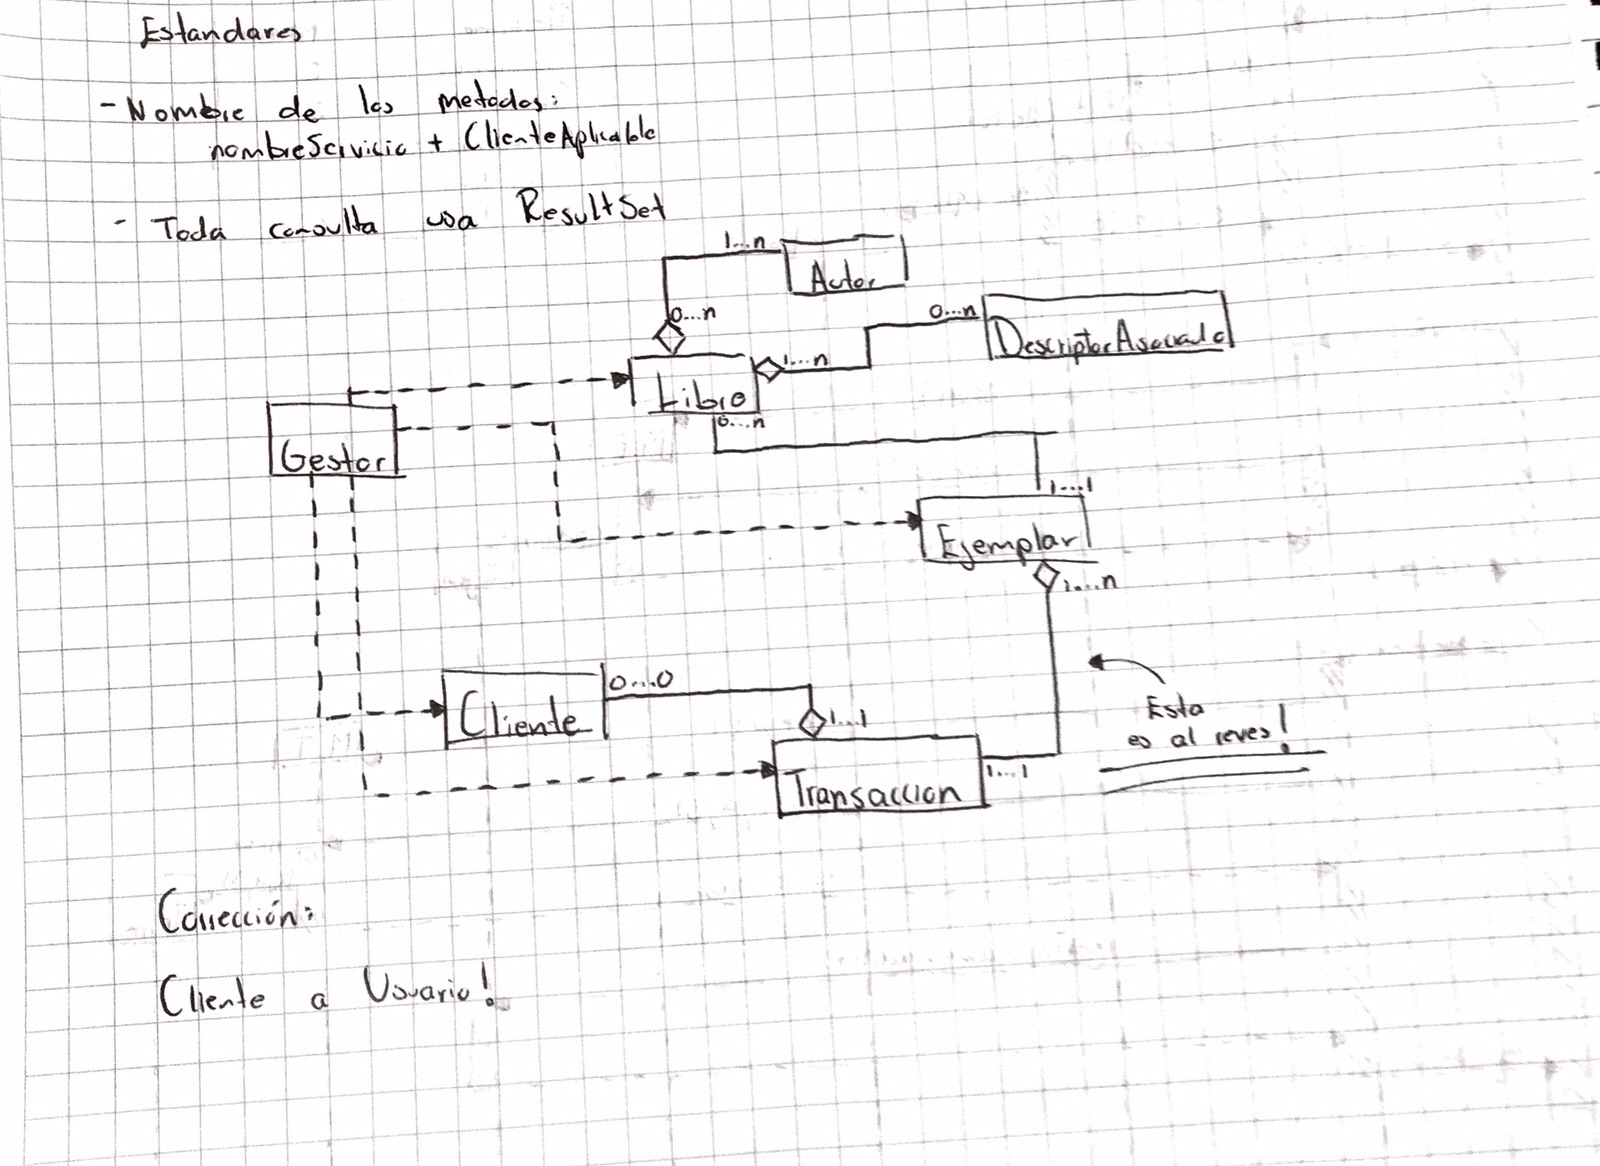 Estandares
- Nombre de los metodos:
nombreServicio + ClienteAplicable
- Toda consulta usa ResultSet
1...n
Autor
0...n
0...n
DescriptorAsociado
1...n
Libro
0...n
Gestor
1...1
Ejemplar
1....n
0...0
Cliente
1...1
Esta
es al reves!
Transaccion
1...1
Corrección:
Cliente a Usuario!